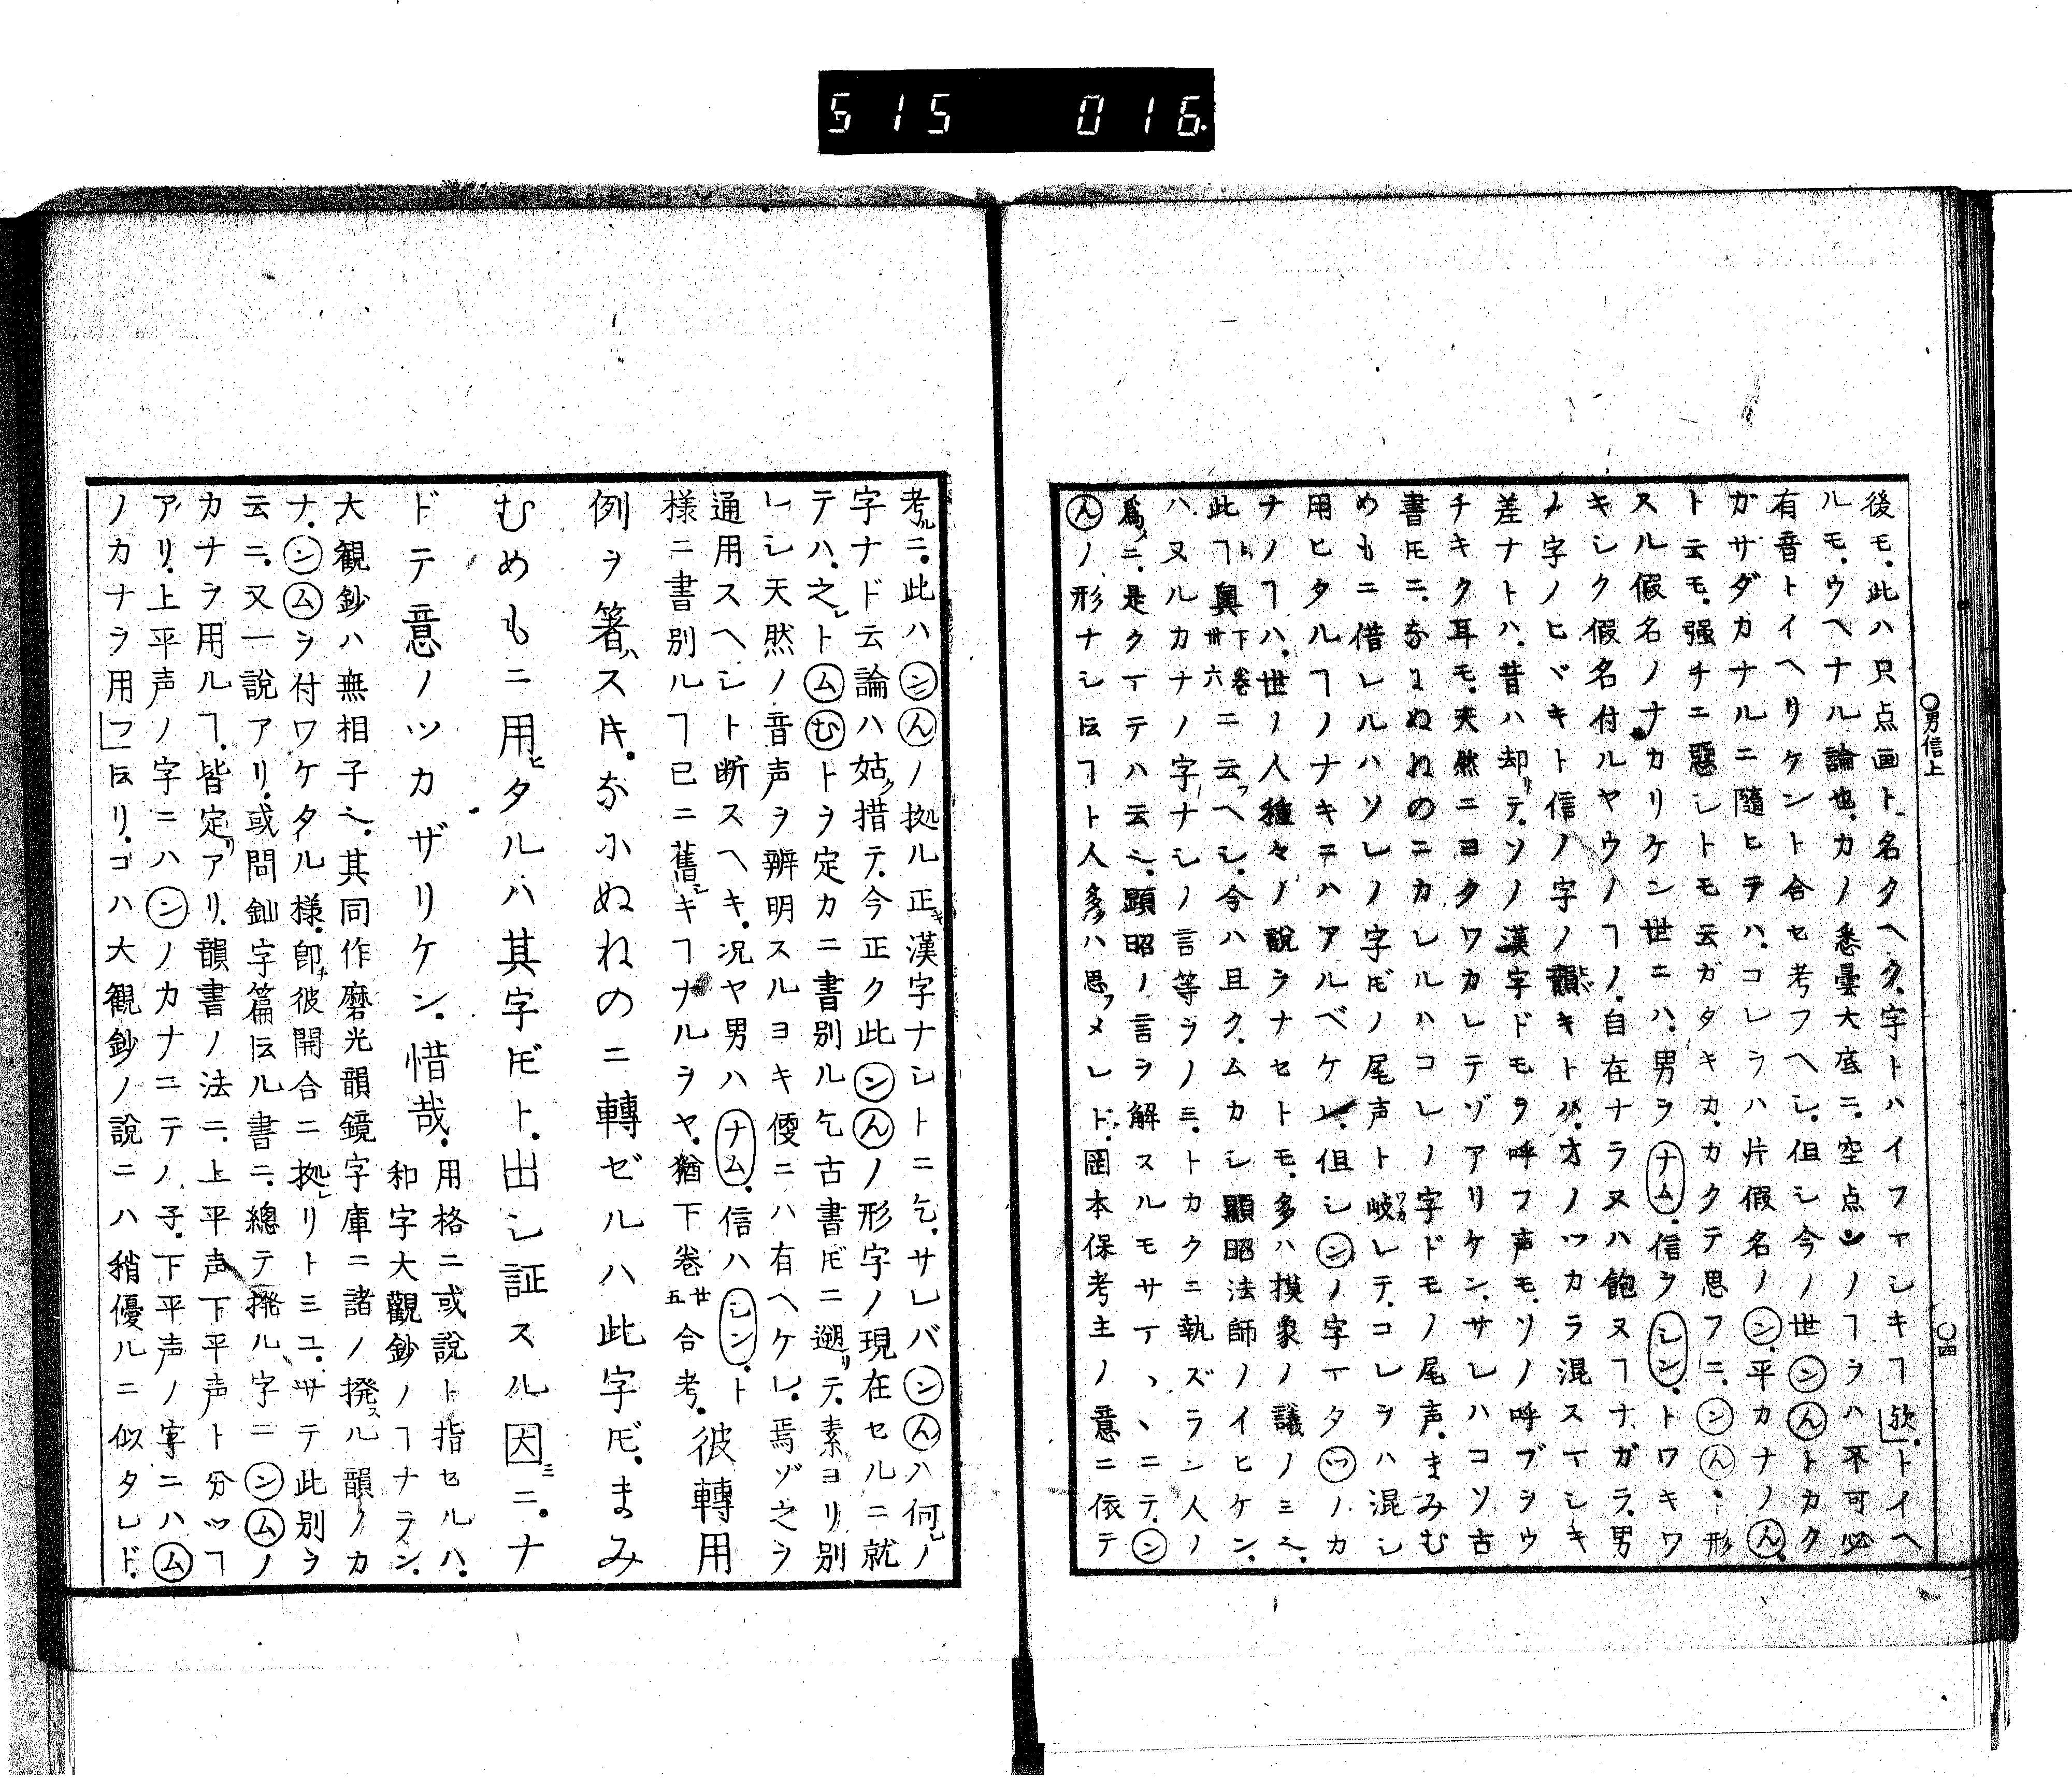 515 016.
○男信上
○四
後モ．此ハ只点画ト名クヘク．字トハイフマシキヿ欤．トイヘ
ルモ．ウヘナル論也．カノ悉曇大底ニ．空点ンノヿヲハ不可必
有音トイヘリケント合セ考フヘシ．但シ今ノ世ンんトカク
ガサダカナルニ隨ヒテハ．コレラハ片假名ノン．平カナノん．
ト云モ．强チニ惡シトモ云ガタキカ．カクテ思フニ．ンん．形
スル假名ノナカリケン世ニハ．男ヲナム．信ヲシン．トワキワ
キシク假名付ルヤウノヿノ．自在ナラヌハ飽ヌヿナガラ．男
ノ字ノヒヾキト信ノ字ノ韻キトガ．オノツカラ混スヘシキ
差ナトハ．昔ハ却リテ．ソノ漢字ドモヲ呼フ声モ．ソノ呼ブヲウ
チキク耳モ．天然ニヨクワカレテゾアリケン．サレハコソ古
書𪜈ニ．なにぬねのニカレルハコレノ字ドモノ尾声．まみむ
めもニ借レルハソレノ字𪜈ノ尾声ト岐レテ．コレヲハ混シ
用ヒタルヿノナキニハアルベケレ．但シンノ字ヘタツノカ
ナノヿハ．世ノ人種々ノ說ヲナセトモ．多ハ摸象ノ議ノミ也．
此ヿ奥下卷卅六ニ云フヘシ．今ハ且ク．ムカシ顯昭法師ノイヒケン．
ハヌルカナノ字ナシノ言等ヲノミ．トカクニ執ズラン人ノ
爲ノニ．是クイテハ云也．顯昭ノ言ヲ解スルモサイヽヽニテ．ン
んノ形ナシ𪜈ヿト人多ハ思フメレド．岡本保考主ノ意ニ依テ
考ルニ．此ハンんノ拠ル正キ漢字ナシトニ乞．サレバンんハ何レノ
字ナド云論ハ姑ク措テ．今正ク此ンんノ形字ノ現在セルニ就
テハ．之レトムむトヲ定カニ書別ル乞古書𪜈ニ遡リテ．素ヨリ別
レシ天然ノ音声ヲ辨明スルヨキ便ニハ有ヘケレ．焉ゾ之ヲ
通用スヘシト断スヘキ．况ヤ男ハナム．信ハシン．ト
様ニ書別ルヿ已ニ舊キヿナルヲヤ．猶下卷廿五合考．彼轉用
例ヲ箸ハスキ．なにぬねのニ轉ゼルハ此字𪜈．まみ
むめもニ用ヒタルハ其字𪜈ト．出シ証スル因ミニ．ナ
ドテ意ノツカザリケン．惜哉．用格ニ或說ト指セルハ．
和字大觀鈔ノヿナラン．
大観鈔ハ無相子也．其同作磨光韻鏡字庫ニ諸ノ撥スル韻ノカ
ナ．ンムヲ付ワケタル様．卽チ彼開合ニ拠レリトミユ．サテ此別ヲ
云ニ．又一說アリ．或問釦字篇𪜈ル書ニ．總テ撥ル字ニンムノ
カナヲ用ルヿ．皆定リアリ．韻書ノ法ニ．上平声下平声ト分ツヿ
アリ．上平声ノ字ニハンノカナニテノ子．下平声ノ字ニハム
ノカナヲ用フ𪜈リ．ゴハ大観鈔ノ說ニハ稍優ルニ似タレド．